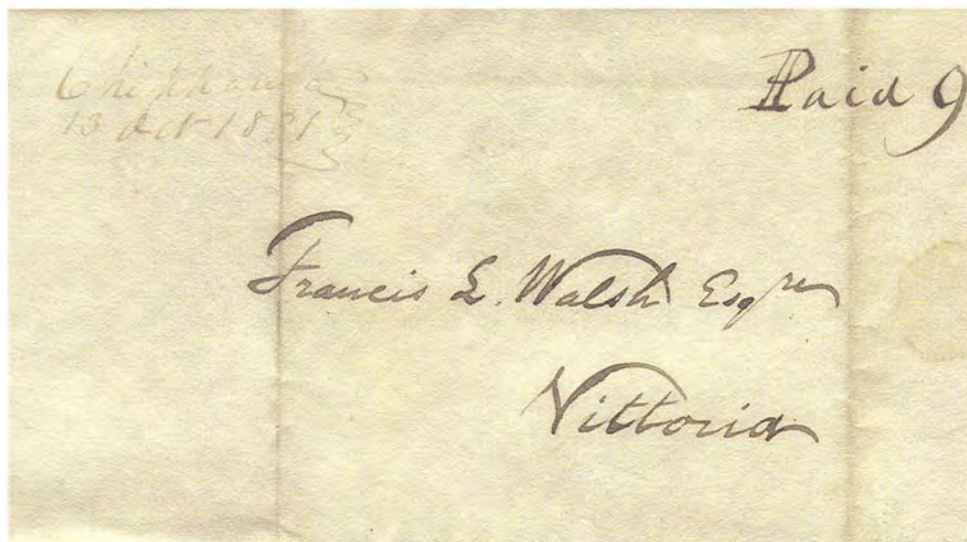 Chippawa
13 Oct
Paid 9
Francis L. Walsh Esqre
Vittoria